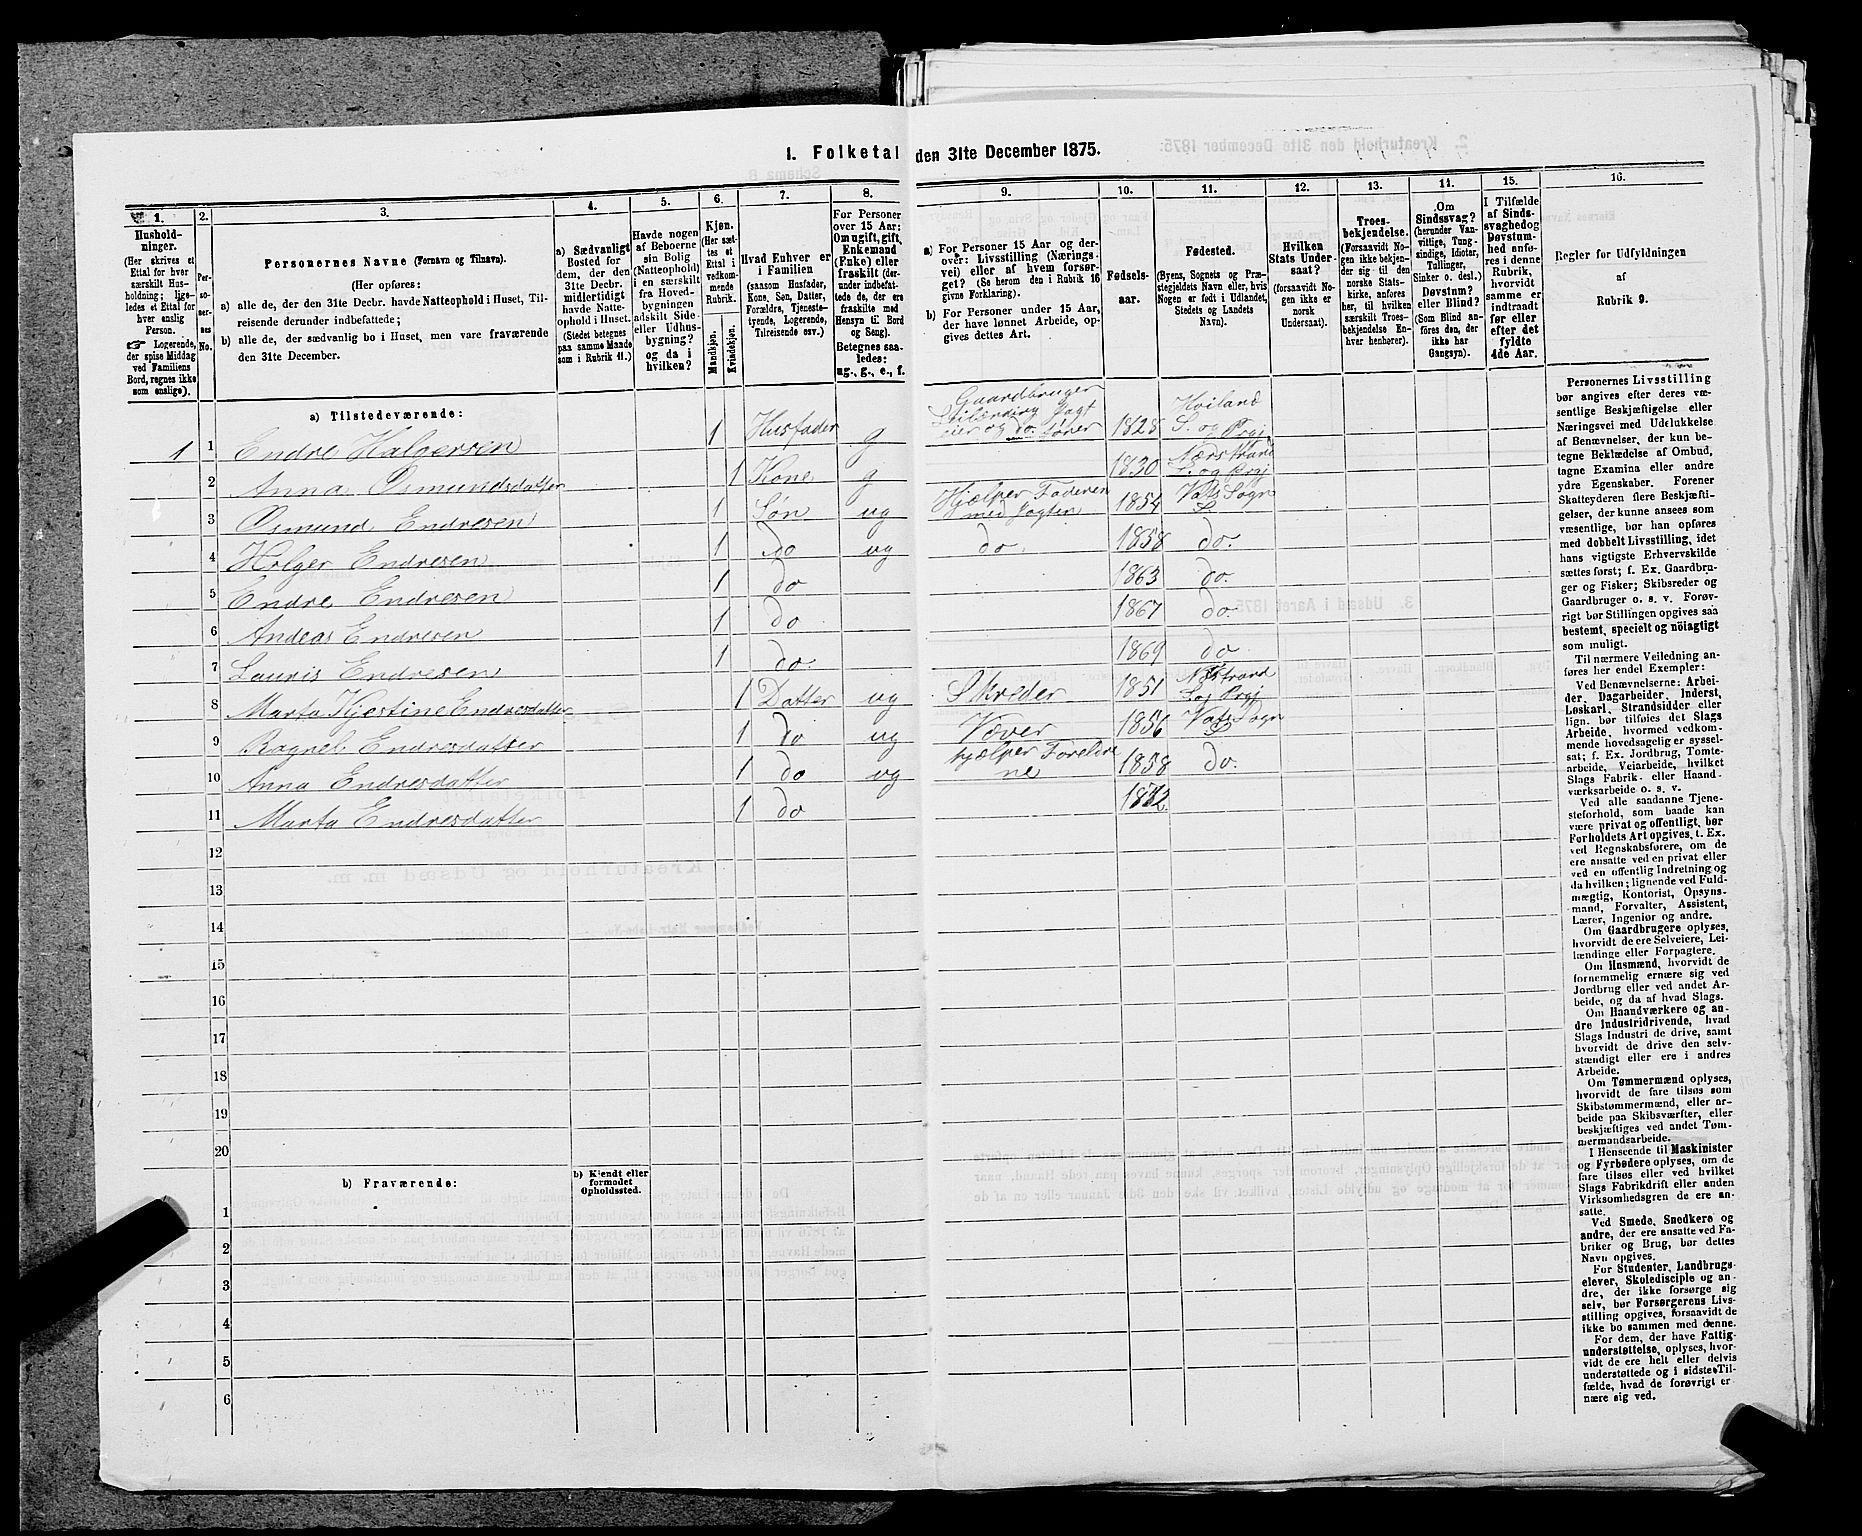 1. Folketal den 31te December 1875.
1.
Hushold-
ninger.
(Her skrives et
Ettal for hver
særskilt Hus-
holdning; lige-
ledes et Ettal for
hver enslig
Person.
☞ Logerende,
der spise Middag
ved Familiens
Bord, regnes ikke
som enslige).
2.
Per-
so-
ner-
nes
No.
3.
Personernes Navne (Fornavn og Tilnavn).
(Her opføres:
a) alle de, der den 31te Decbr. havde Natteophold i Huset, Til-
reisende derunder indbefattede;
b) alle de, der sædvanlig bo i Huset, men vare fraværende
den 31te December.
4.
a) Sædvanligt
Bosted for
dem, der den
31te Decbr.
midlertidigt
havde Natte-
ophold i Huset.
(Stedet betegnes
paa samme Maade
som i Rubrik 11.)
5.
Havde nogen
af Beboerne
sin Bolig
(Natteophold)
i en særskilt
fra Hoved-
bygningen
adskilt Side-
eller Udhus-
bygning?
og da i
hvilken?
6.
Kjøn.
(Her sæt-
tes et
Ettal i
vedkom-
mende
Rubrik.
Mandkjøn.
Kvindekjøn.
7.
Hvad Enhver er
i Familien
(saasom Husfader,
Kone, Søn, Datter,
Forældre, Tjeneste-
tyende, Logerende,
Tilreisende osv.).
8.
For Personer
over 15 Aar:
Om ugift, gift,
Enkemand
(Enke) eller
fraskilt (der-
under indbefat-
tede de, der ere
fraskilte med
Hensyn til Bord
og Seng).
Betegnes saa-
ledes:
ug., g., e., f.
9.
a) For Personer 15 Aar og der-
over: Livsstilling (Nærings-
vei) eller af hvem forsør-
get? (Se herom den i Rubrik 16
givne Forklaring).
b) For Personer under 15 Aar,
der have lønnet Arbeide, op-
gives dettes Art.
10.
Fødsels-
aar.
11.
Fødested.
(Byens, Sognets og Præ-
stegjeldets Navn eller, hvis
Nogen er født i Udlandet,
Stedets og Landets
Navn).
12.
Hvilken
Stats Under-
saat?
(forsaavidt No-
gen ikke er
norsk
Undersaat).
13.
Troes-
bekjendelse.
(Forsaavidt No-
gen ikke bekjen-
der sig til den
norske Stats-
kirke, anføres
her, til hvilken
særskilt Troes-
bekjendelse En-
hver henhører).
14.
Om
Sindssvag?
(herunder Van-
vittige, Tung-
sindige, Idioter,
Tullinger,
Sinker o. desl.)
Døvstum?
eller Blind?
(Som Blind an-
føres den, der
ikke har
Gangsyn).
15.
I Tilfælde
af Sinds-
svaghed og
Døvstum-
hed anfø-
res i denne
Rubrik,
hvorvidt
samme er
indtraadt
før eller
efter det
fyldte
4de Aar.
16.
Regler for Udfyldningen
af
Rubrik 9.
a) Tilstedeværende:
1 1 Endre Halgersen 1 Husfader g Gaardbruger Leilænding Jagt eier og do. fører 1828 Høiland S. og Prgj
2 Anna Osmundsdatter 1 Kone g 1830 Nærstrand S. og Prgj
3 Osmund Endresen 1 Søn ug Hjælper Faderen med Jagten 1854 Vats Sogn
4 Holger Endresen 1 do ug do. 1858 do.
5 Endre Endresen 1 do 1863 do.
6 Andeas Endresen 1 do 1867 do.
7 Lauris Endresen 1 do. 1869 do
8 Marta Kjestine Endresdatter 1 Datter ug Skreder 1851 Nærstrand S og Prgj
9 Ragnel Endresdatter 1 do ug Væver 1856 Vats Sogn
10 Anna Endresdatter 1 do ug hjælper Foreldrene 1858 do.
11 Marta Endresdatter 1 do 1872
12
13
14
15
16
17
18
19
20
b) Fraværende:
b) Kjendt eller
formodet
Opholdssted.
1
2
3
4
5
6
Personernes Livsstilling
bør angives efter deres væ-
sentlige Beskjæftigelse eller
Næringsvei med Udelukkelse
af Benævnelser, der kun be-
tegne Beklædelse af Ombud,
tagne Examina eller andre
ydre Egenskaber. Forener
Skatteyderen flere Beskjæfti-
gelser, der kunne ansees som
væsentlige, bør han opføres
med dobbelt Livsstilling, idet
hans vigtigste Erhvervskilde
sættes først; f. Ex. Gaardbru-
ger og Fisker; Skibsreder og
Gaardbruger o. s. v. Forøv-
rigt bør Stillingen opgives saa
bestemt, specielt og nöiagtigt
som muligt.
Til nærmere Veiledning an-
føres her endel Exempler:
Ved Benævnelserne: Arbei-
der, Dagarbeider, Inderst,
Løskarl, Strandsidder eller
lign. bør tilføies det Slags
Arbeide, hvormed vedkom-
mende hovedsagelig er syssel-
sat; f. Ex. Jordbrug, Tomte-
arbeide, Veiarbeide, hvilket
Slags Fabrik- eller Haand-
værksarbeide o. s. v.
Ved alle saadanne Tjene-
steforhold, som baade kan
være privat og offentligt, bør
Forholdets Art opgives, t. Ex.
ved Regnskabsførere, om de
ere ansatte ved en privat eller
ved en offentlig Indretning og
da hvilken; lignende ved Fuld-
mægtig, Kontorist, Opsyns-
mand, Forvalter, Assistent,
Lærer, Ingeniør og andre.
Om Gaardbrugere oplyses,
hvorvidt de ere Selveiere, Lei-
lændinge eller Forpagtere.
Om Husmænd, hvorvidt de
fornemmelig ernære sig ved
Jordbrug eller ved andet Ar-
beide, og da af hvad Slags.
Om Haandværkere og an-
dre Industridrivende, hvad
Slags Industri de drive, samt
hvorvidt de drive den selv-
stændigt eller ere i andres
Arbeide.
Om Tømmermænd oplyses,
hvorvidt de fare tilsøs som
Skibstømmermænd, eller ar-
beide paa Skibsværfter, eller
beskjæftiges ved andet Tøm-
mermandsarbeide.
I Henseende til Maskinister
og Fyrbødere oplyses, om de
fare tilsøs eller ved hvilket
Slags Fabrikdrift eller anden
Virksomhedsgren de ere an-
satte.
Ved Smede, Snedkere og
andre, der ere ansatte ved Fa-
briker og Brug, bør dettes
Navn opgives.
For Studenter, Landbrugs-
elever, Skoledisciple og an-
dre, der ikke forsørge sig
selv, bør Forsørgerens Livs-
stilling opgives, forsaavidt de
ikke bo sammen med denne.
For dem, der have Fattig-
understøttelse, oplyses, hvor-
vidt de ere helt eller delvis
understøttede og i sidste Til-
fælde, hvad de forøvrigt er-
nære sig ved.